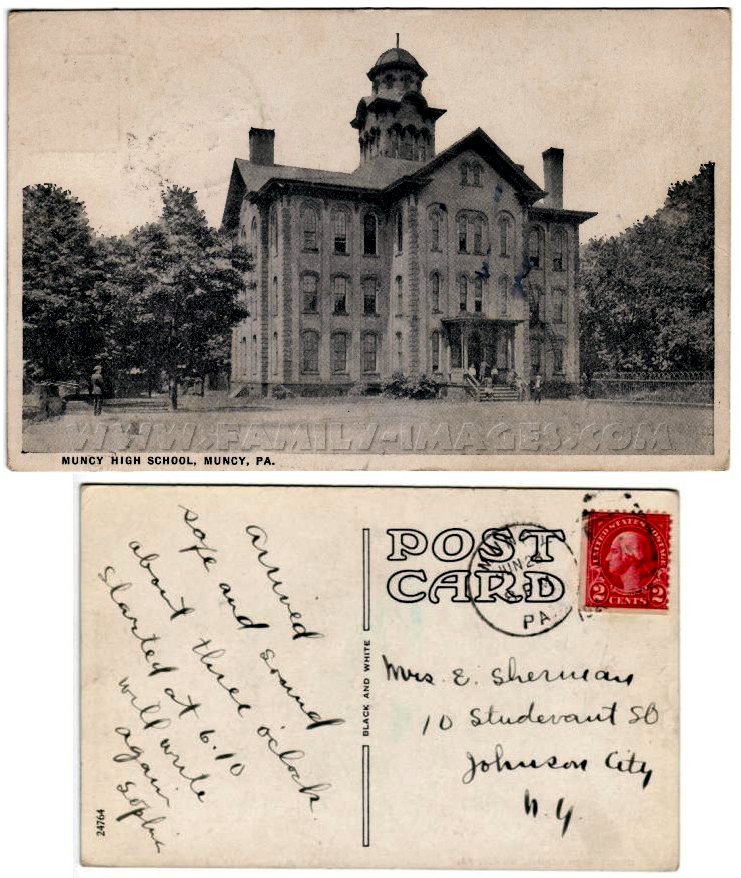 WWW.FAMILY-IMAGES.COM
MUNCY HIGH SCHOOL, MUNCY, PA.
arrived
safe and sound
about three o'clock
started at 6.10
will write
again
Sophie
24764
BLACK AND WHITE
POST
CARD
MUN
JUN 2
PA.
UNITED STATES POSTAGE
2 CENTS 2
Mrs. E. Sherman
10 Studevant St
Johnson City
N.Y.